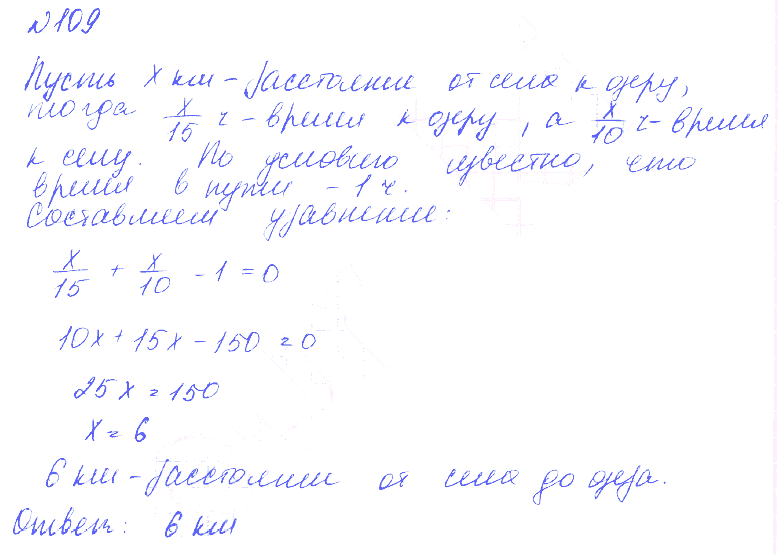 №109
Пусть x км – расстояние от села к озеру,
тогда x/15 ч – время к озеру, а x/10 ч – время
к селу. По условию известно, что
время в пути – 1 ч.
Составляем уравнение:
x/15 + x/10 - 1 = 0
10x + 15x - 150 = 0
25x = 150
x = 6
6 км – расстояние от села до озера.
Ответ: 6 км